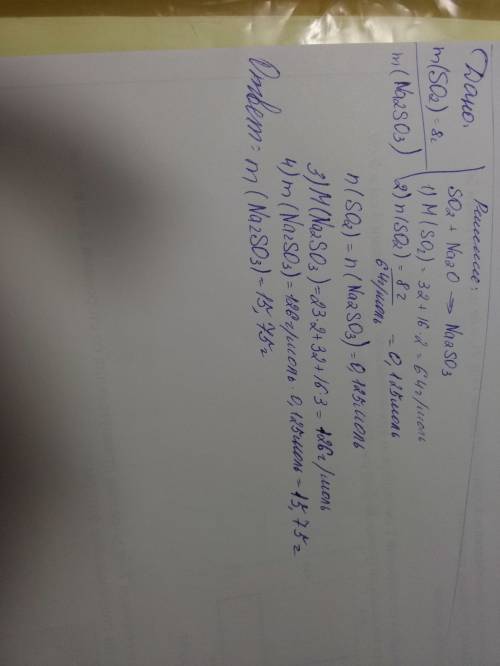 Дано:
m(SO2) = 8г
m(Na2SO3)
Решение:
SO2 + Na2O → Na2SO3
1) M(SO2) = 32+16·2 = 64г/моль
2) n(SO2) = 8г / 64г/моль = 0,125моль
n(SO2) = n(Na2SO3) = 0,125моль
3) M(Na2SO3) = 23·2+32+16·3 = 126г/моль
4) m(Na2SO3) = 126г/моль · 0,125моль = 15,75г
Ответ: m(Na2SO3) = 15,75г